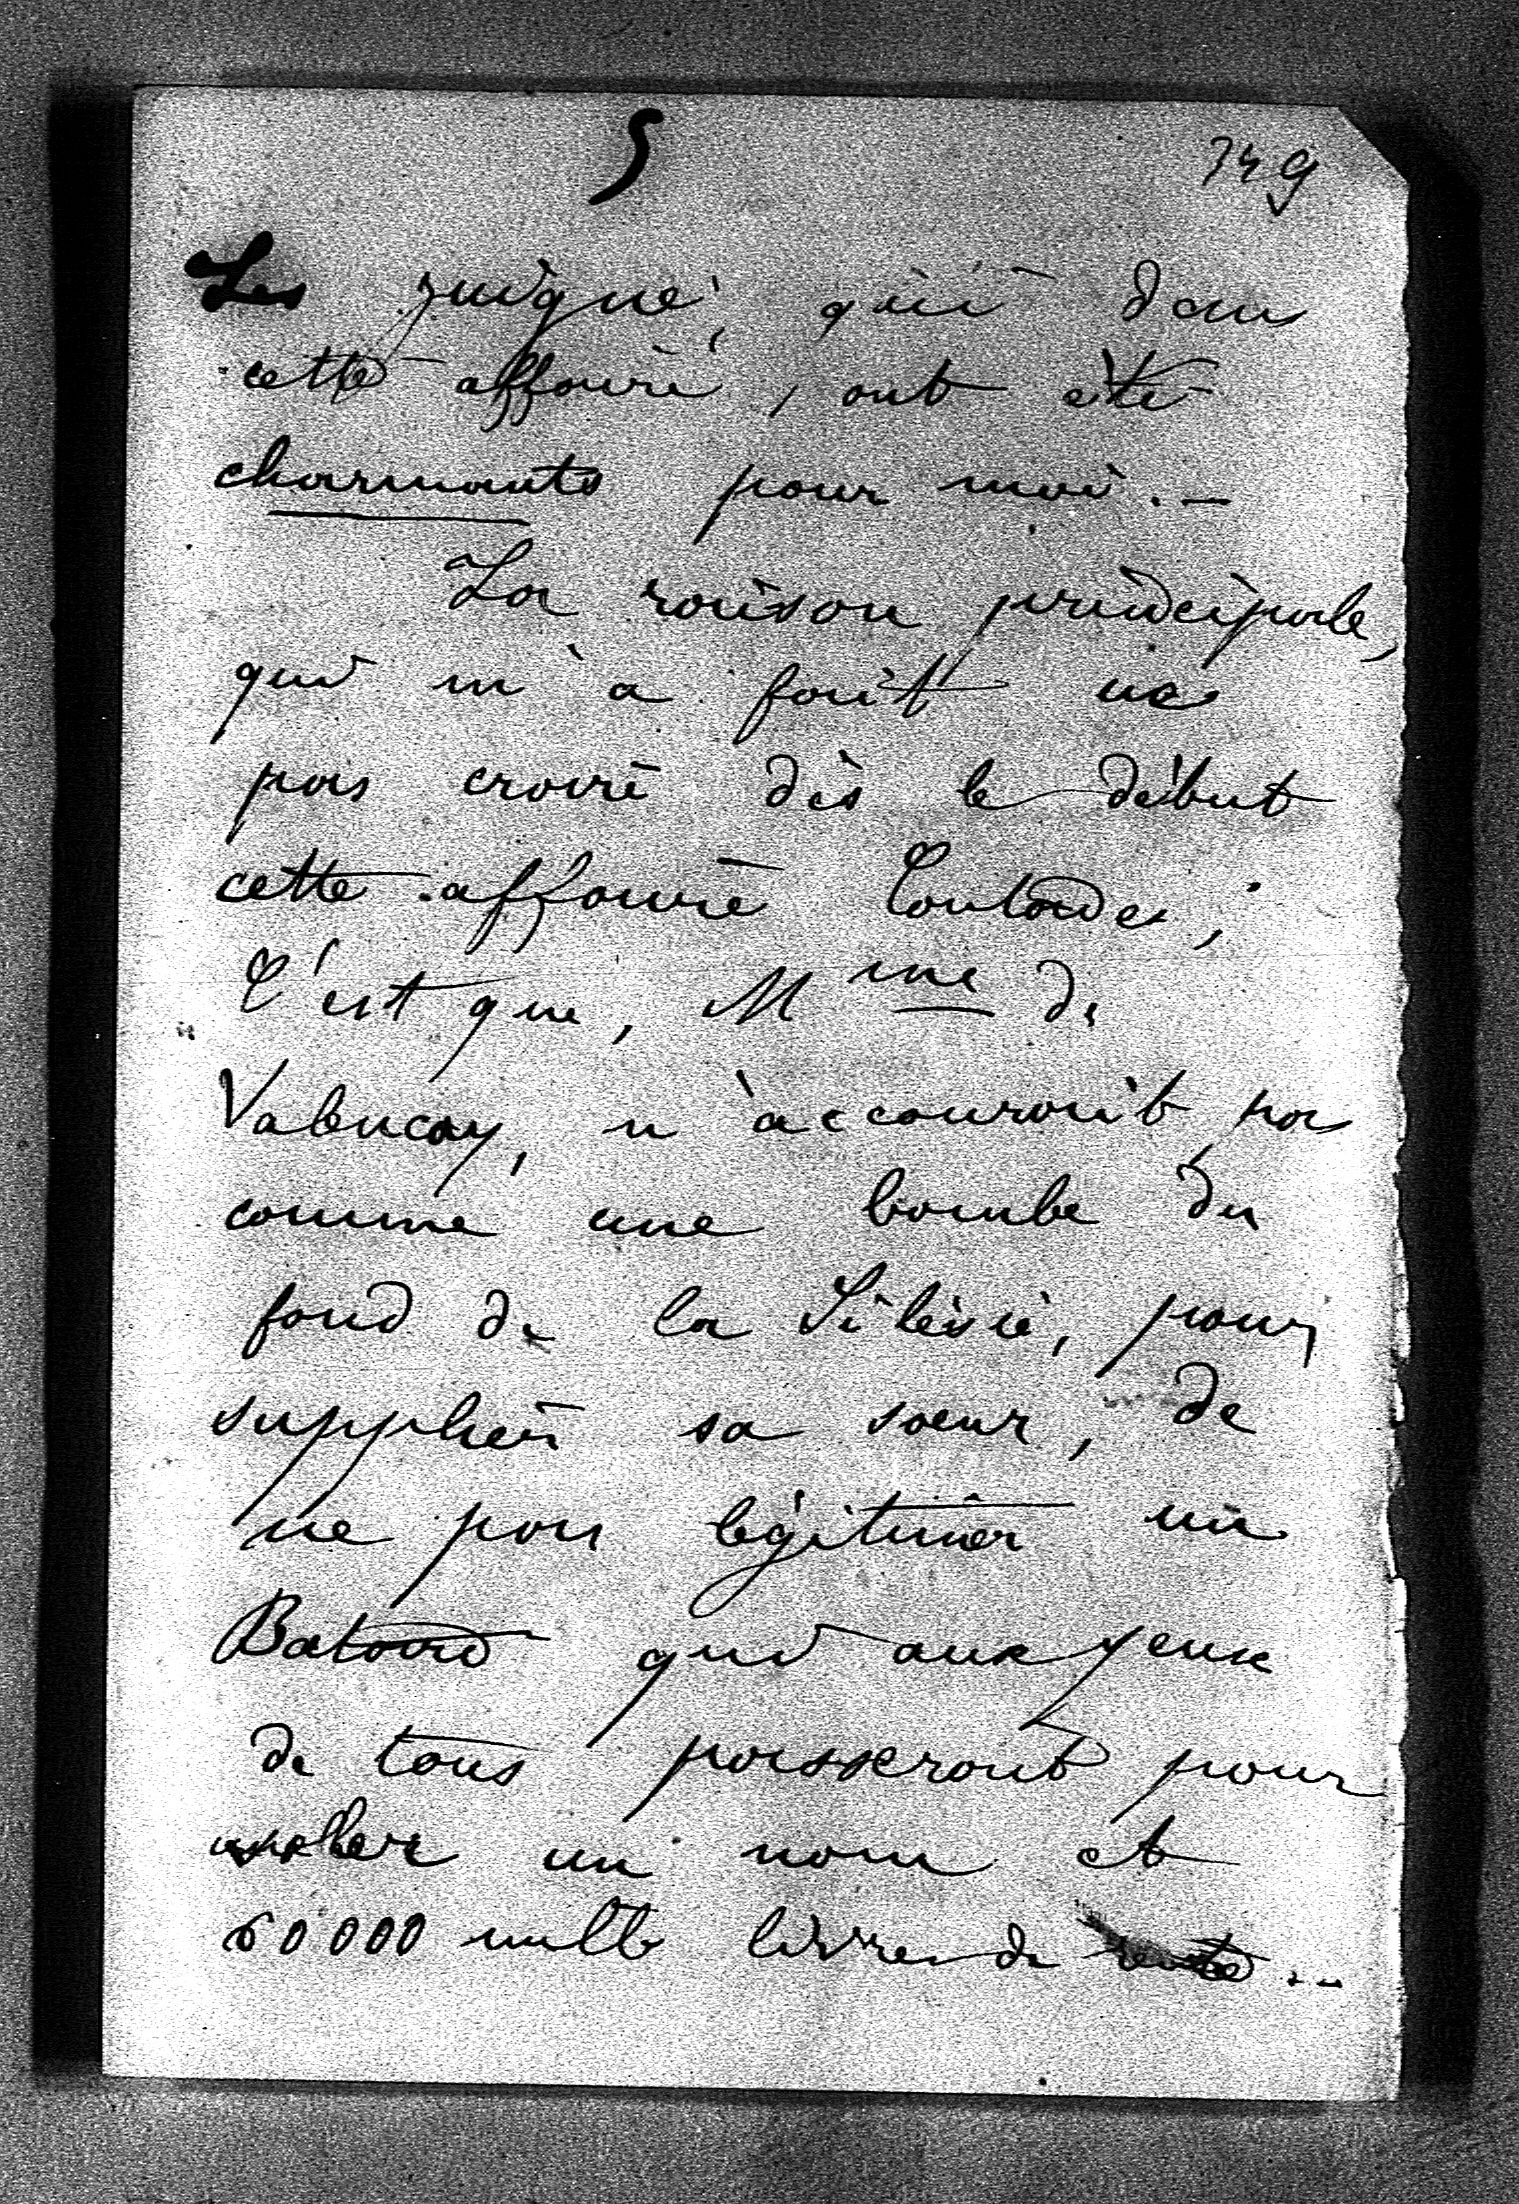 5
349
Les juigné, qui dans
cette affaire, ont été
charmants pour moi. —
La raison principale,
qui m'a fait ne
pas croire dès le début
cette affaire Coulondes,
C'est que, Mme de
Valencay, n'accourait pas
comme une bombe du
fond de la Silésie, pour
supplier sa soeur, de
ne pas légitimer un
Batard qui aux yeux
de tous passerait pour
voler un nom et
60000 mille livres de rente...